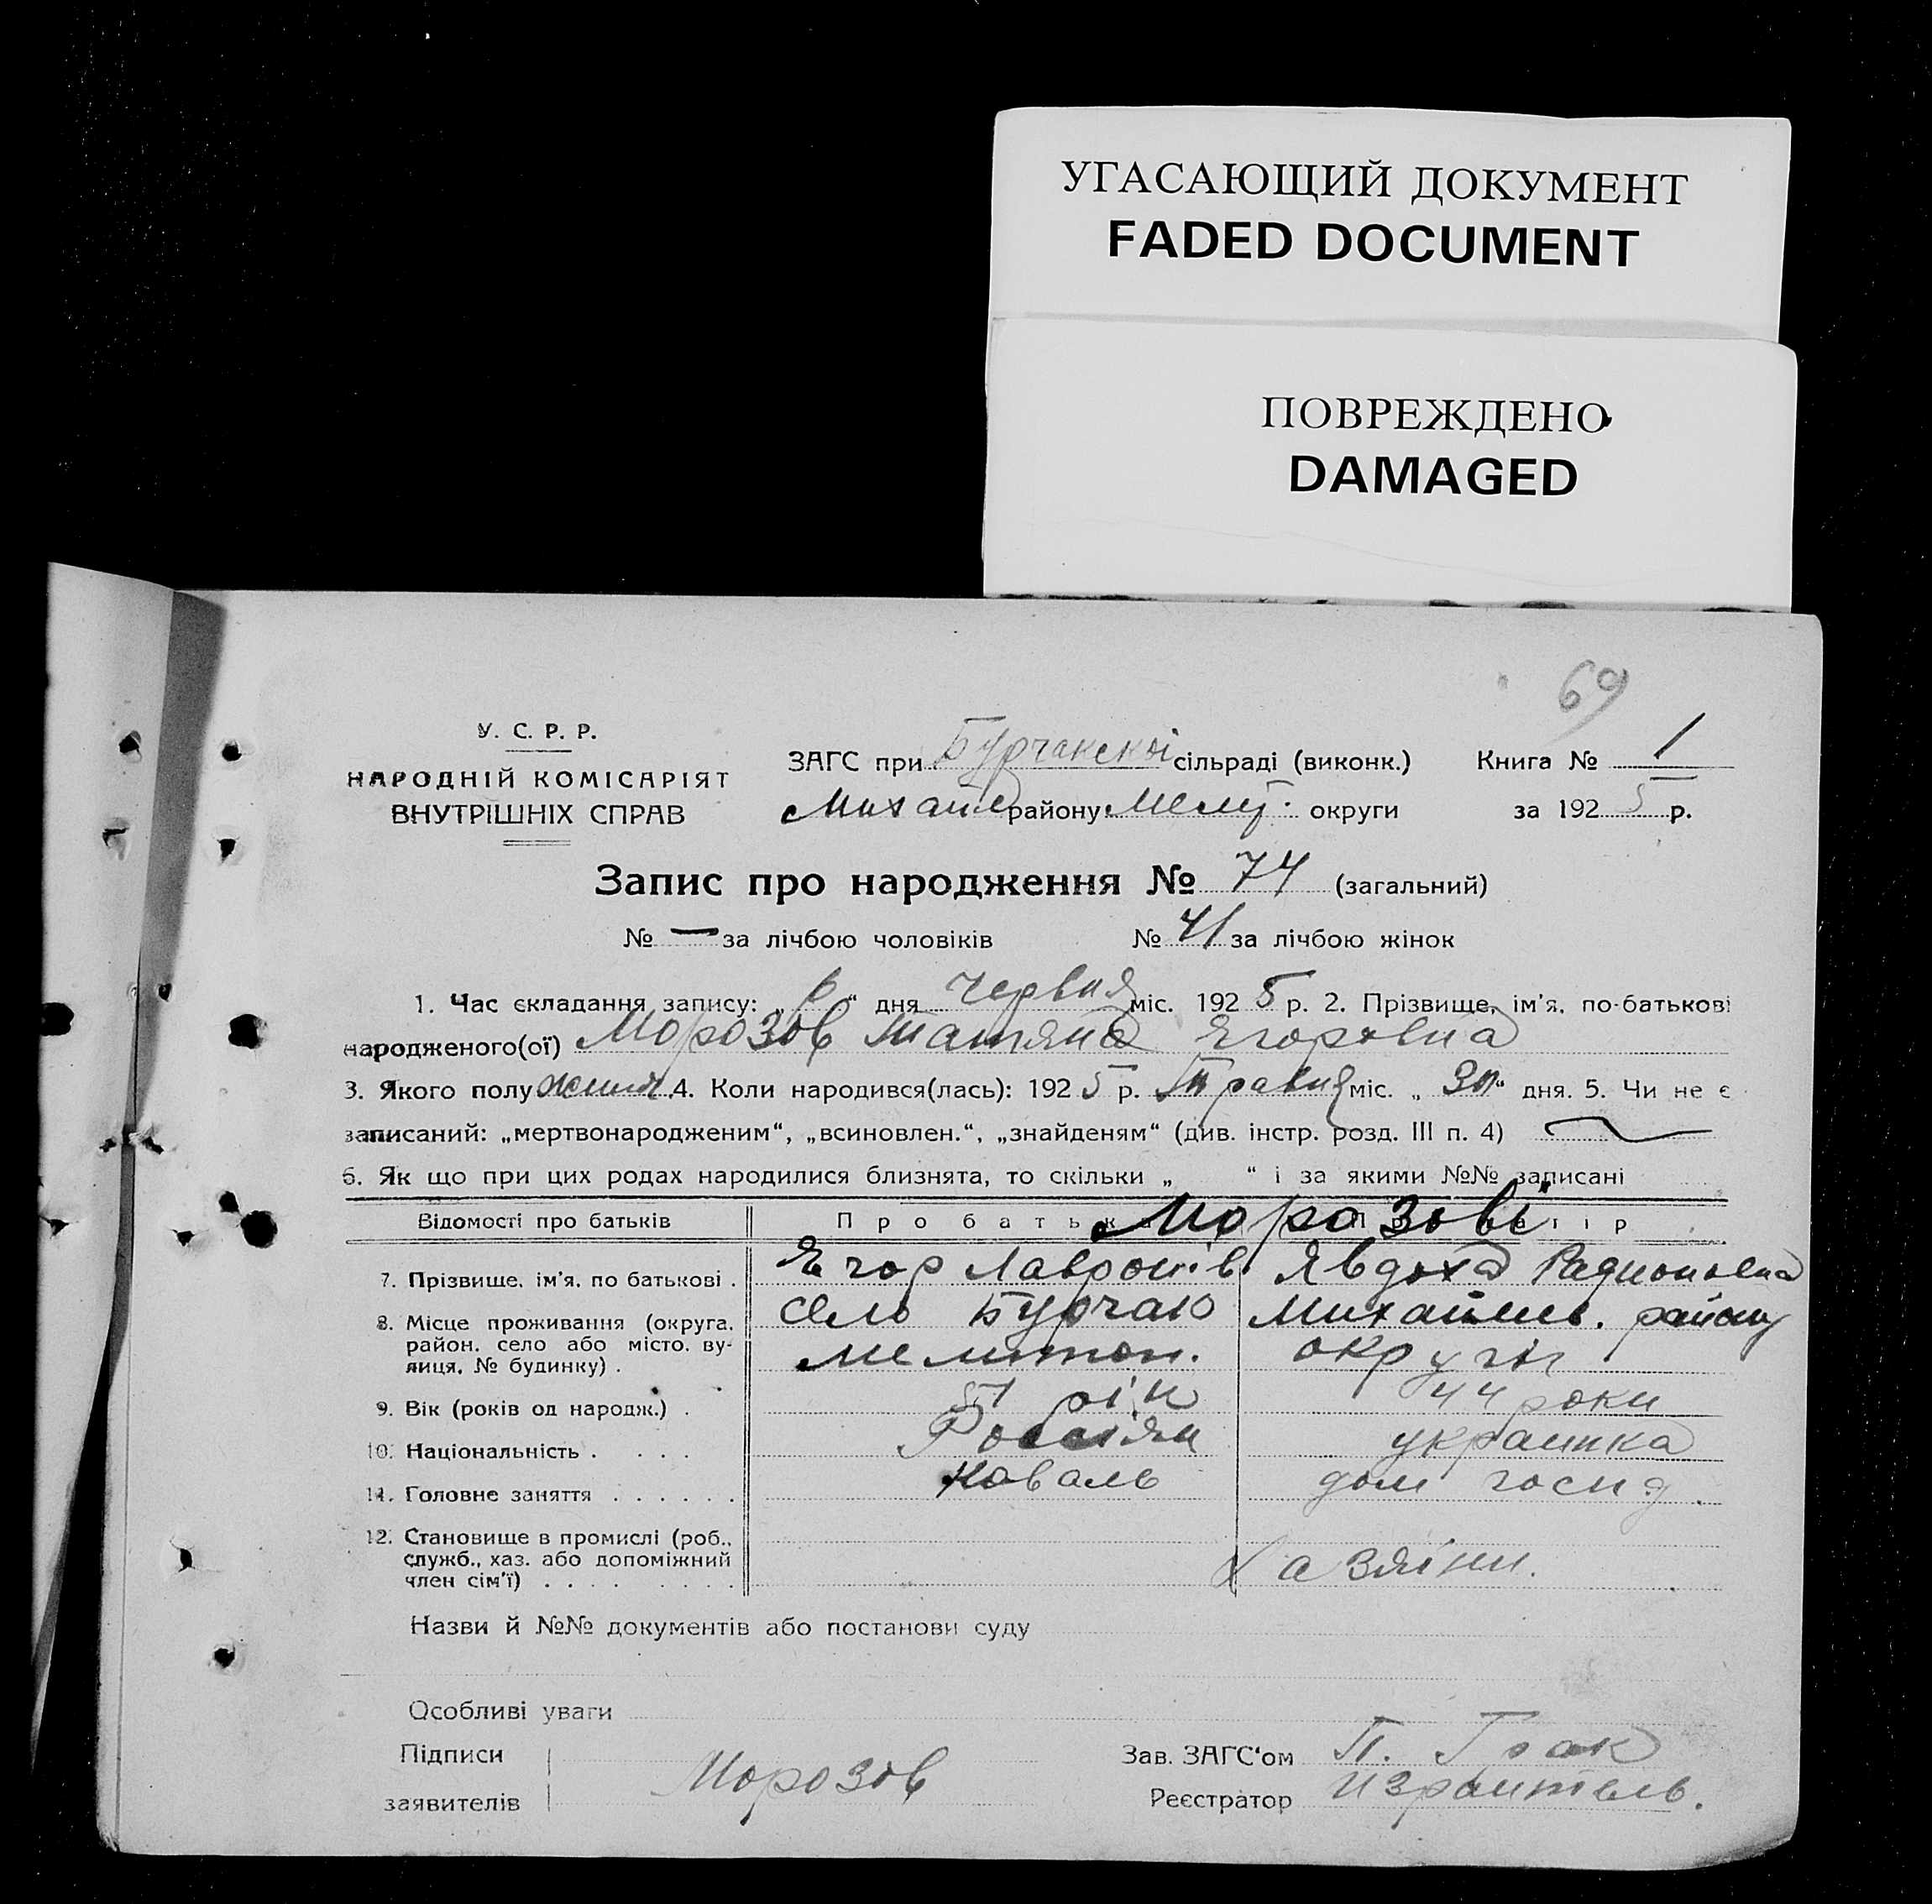 УГАСАЮЩИЙ ДОКУМЕНТ
FADED DOCUMENT
ПОВРЕЖДЕНО
DAMAGED
69
У. С. Р. Р.
НАРОДНІЙ КОМІСАРІЯТ
ВНУТРІШНІХ СПРАВ
ЗАГС при Бурчакскій сільраді (виконк.) Книга № 1
Михайл району Меліт. округи за 1925 р.
Запис про народження № 74 (загальний)
№ — за лічбою чоловіків № 41 за лічбою жінок
1. Час складання запису: „6“ дня Червня міс. 1925 р. 2. Прізвище, ім'я, по-батькові
народженого(ої) Морозов Татяна Егоровна
3. Якого полу жіноч 4. Коли народився(лась): 1925 р. Травня міс. „30“ дня. 5. Чи не є
записаний: „мертвонародженим“, „всиновлен.“, „знайденям“ (див. інстр. розд. III п. 4)
6. Як що при цих родах народилися близнята, то скільки „ “ і за якими №№ записані
Відомості про батьків Про батька Морозові Про матір
7. Прізвище, ім'я, по батькові . Егор Лавронів Явдоха Радионовна
8. Місце проживання (округа, село Бурчак Михайлів. району
район, село або місто, ву-
лиця, № будинку) . Мелитоп. округи
9. Вік (років од народж.) . 51 рік 44 роки
10. Національність . . . . Россіян украинка
11. Головне заняття . . . . . . Коваль дом госпд.
12. Становище в промислі (роб.,
служб., хаз. або допоміжний
член сім'ї) . . . . . . . . Хазяіни.
Назви й №№ документів або постанови суду
Особливі уваги
Підписи Зав. ЗАГС'ом П. Грак
Морозов
заявителів Реєстратор